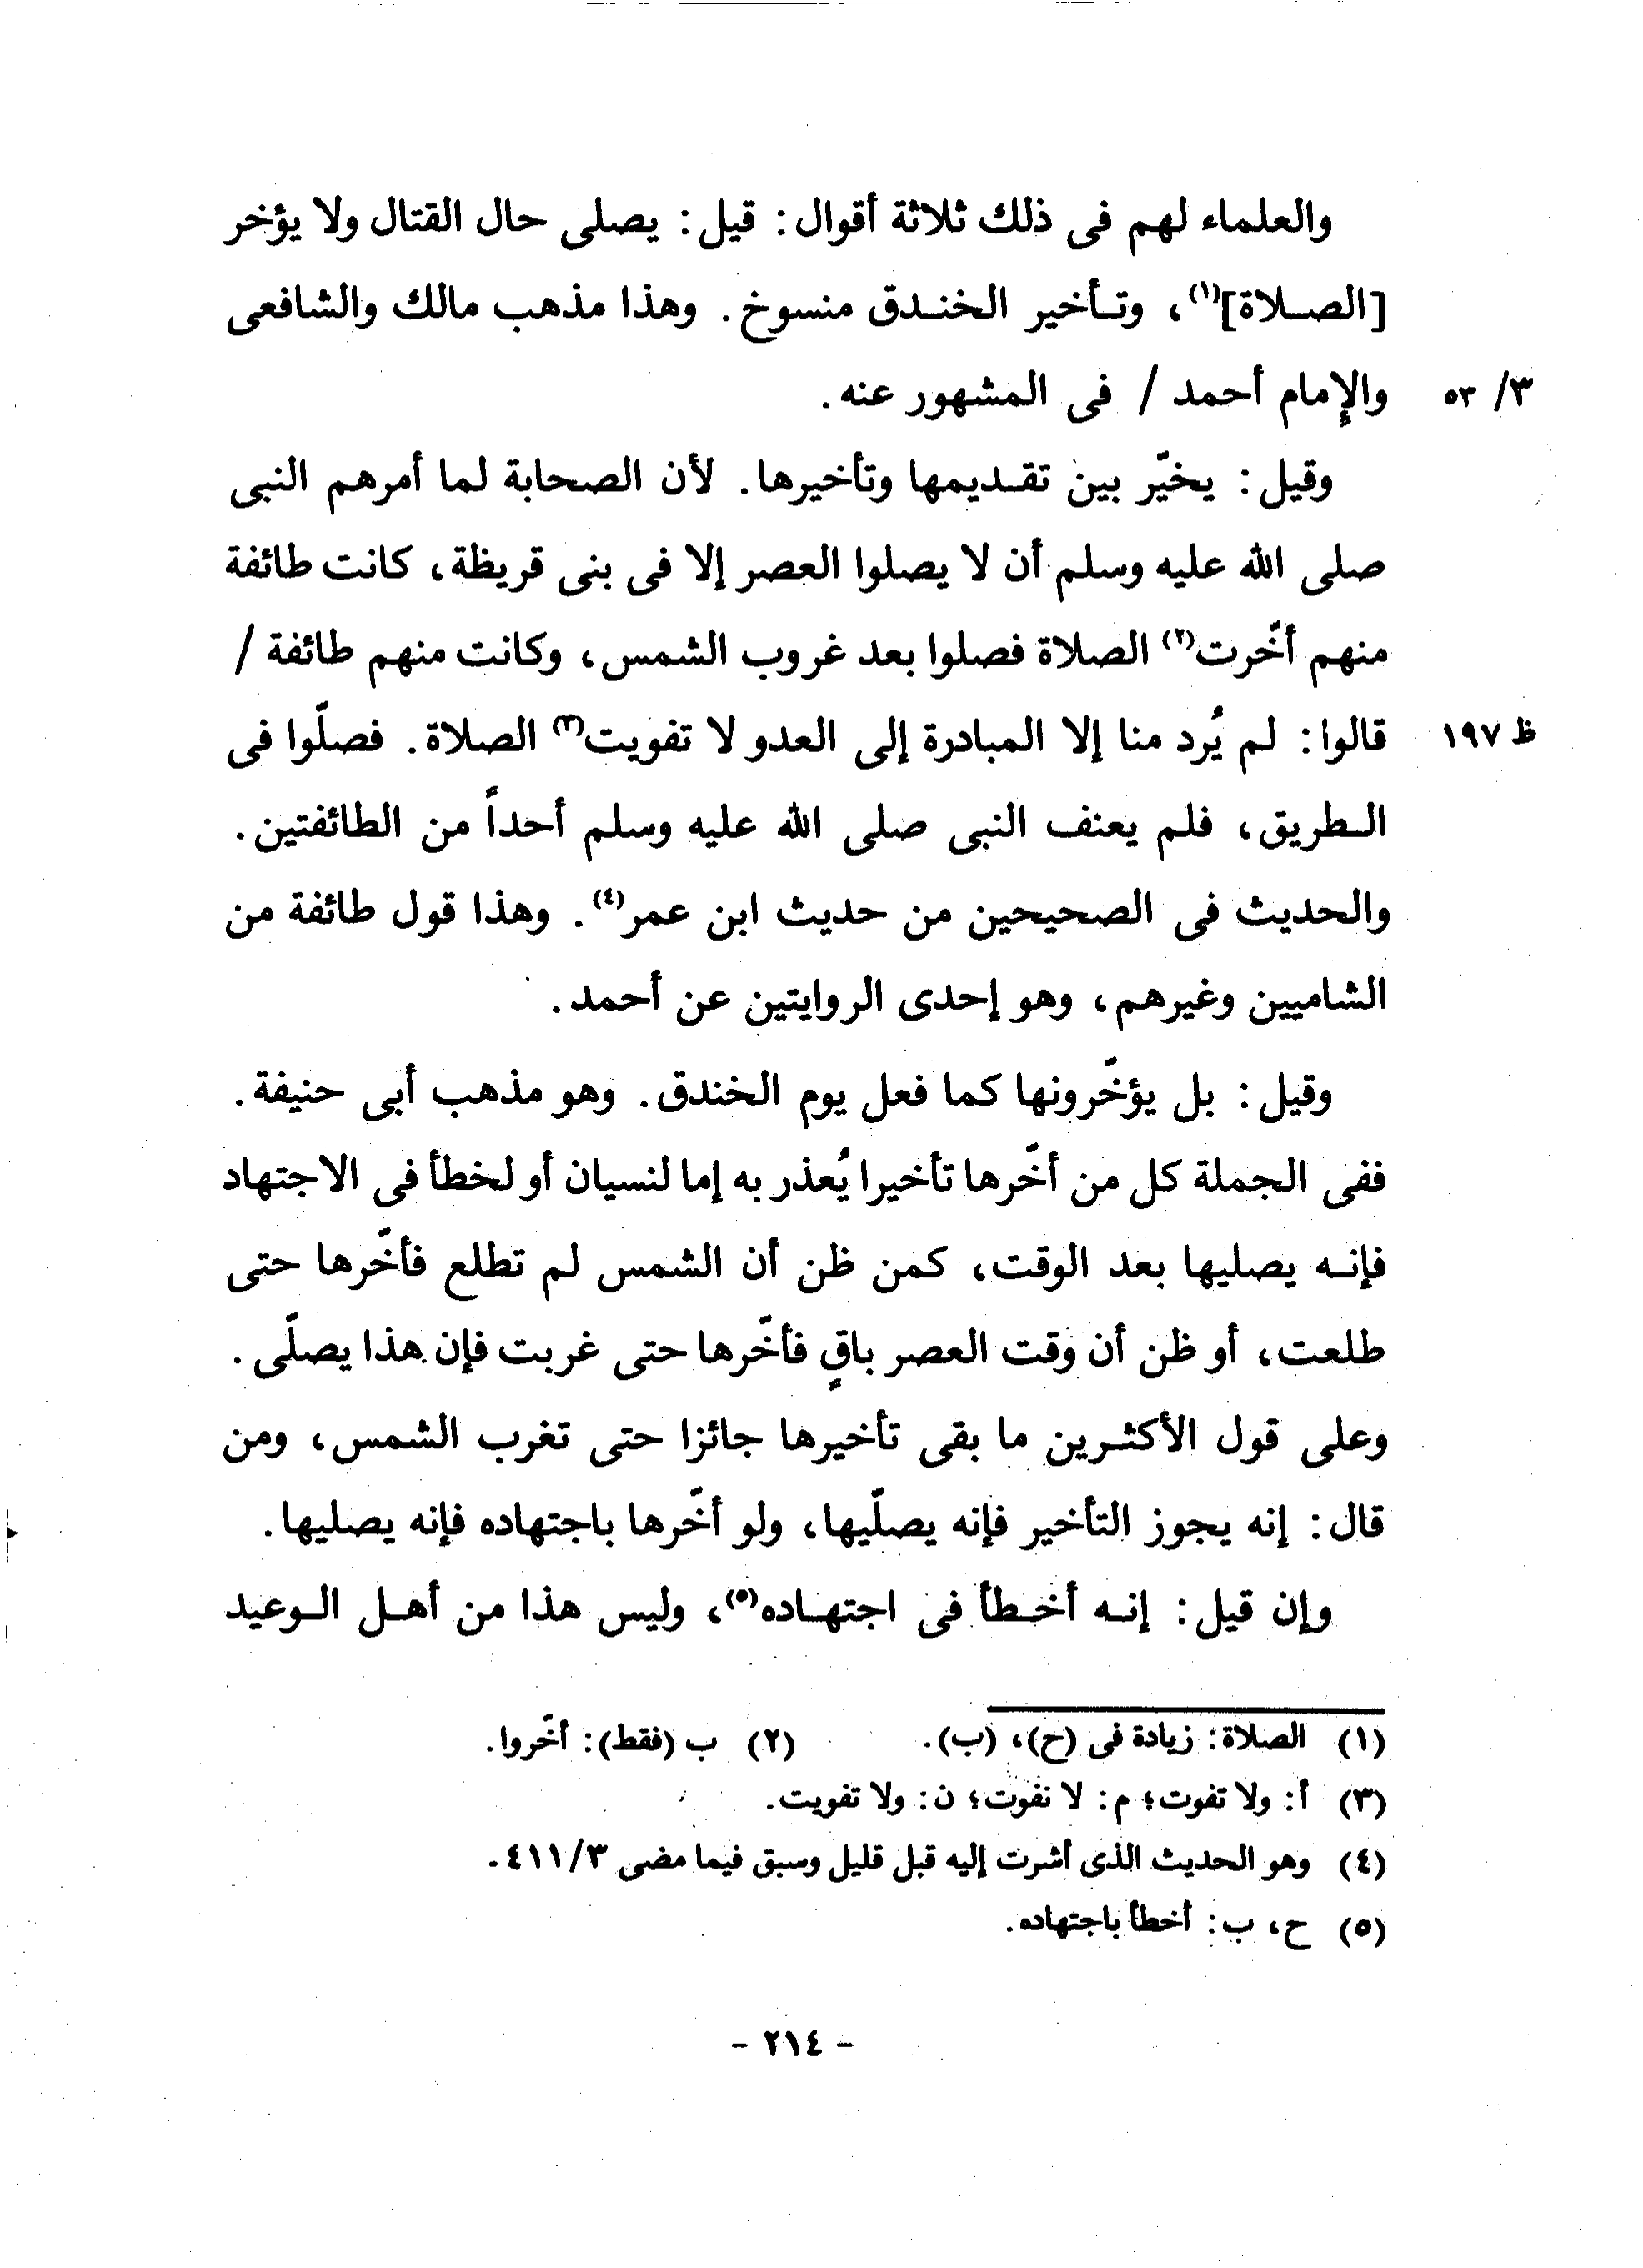 والعلماء لهم فى ذلك ثلاثة أقوال: قيل: يصلى حال القتال ولا يؤخر
[الصلاة](١)، وتأخير الخندق منسوخ. وهذا مذهب مالك والشافعى
والإمام أحمد / فى المشهور عنه. ٣/ ٥٣
وقيل: يخيّر بين تقديمها وتأخيرها. لأن الصحابة لما أمرهم النبى
صلى الله عليه وسلم أن لا يصلوا العصر إلا فى بنى قريظة، كانت طائفة
منهم أخّرت(٢) الصلاة فصلوا بعد غروب الشمس، وكانت منهم طائفة /
قالوا: لم يُرد منا إلا المبادرة إلى العدو لا تفويت(٣) الصلاة. فصلّوا فى ظ ١٩٧
الطريق، فلم يعنف النبى صلى الله عليه وسلم أحداً من الطائفتين.
والحديث فى الصحيحين من حديث ابن عمر(٤). وهذا قول طائفة من
الشاميين وغيرهم، وهو إحدى الروايتين عن أحمد.
وقيل: بل يؤخّرونها كما فعل يوم الخندق. وهو مذهب أبى حنيفة.
ففى الجملة كل من أخّرها تأخيرا يُعذر به إما لنسيان أو لخطأ فى الاجتهاد
فإنه يصليها بعد الوقت، كمن ظن أن الشمس لم تطلع فأخّرها حتى
طلعت، أو ظن أن وقت العصر باقٍ فأخّرها حتى غربت فإن هذا يصلّى.
وعلى قول الأكثرين ما بقى تأخيرها جائزا حتى تغرب الشمس، ومن
قال: إنه يجوز التأخير فإنه يصلّيها، ولو أخّرها باجتهاده فإنه يصليها.
وإن قيل: إنه أخطأ فى اجتهاده(٥)، وليس هذا من أهل الوعيد
(١) الصلاة: زيادة فى (ح)، (ب). (٢) ب (فقط): أخّروا.
(٣) أ: ولا تفوت؛ م: لا نفوت؛ ن: ولا تفويت.
(٤) وهو الحديث الذى أشرت إليه قبل قليل وسبق فيما مضى ٤١١/٣.
(٥) ح، ب: أخطأ باجتهاده.
- ٢١٤ -